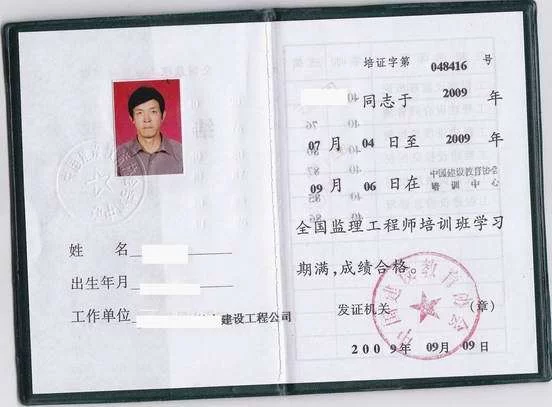 姓 名
出生年月
工作单位 建设工程公司
培证字第 048416 号
同志于 2009 年
07 月 04 日至 2009 年
09 月 06 日在 中国建设教育协会
培训中心
全国监理工程师培训班学习
期满,成绩合格。
发证机关 (章)
中国建设教育协会
2009年 09月 09日